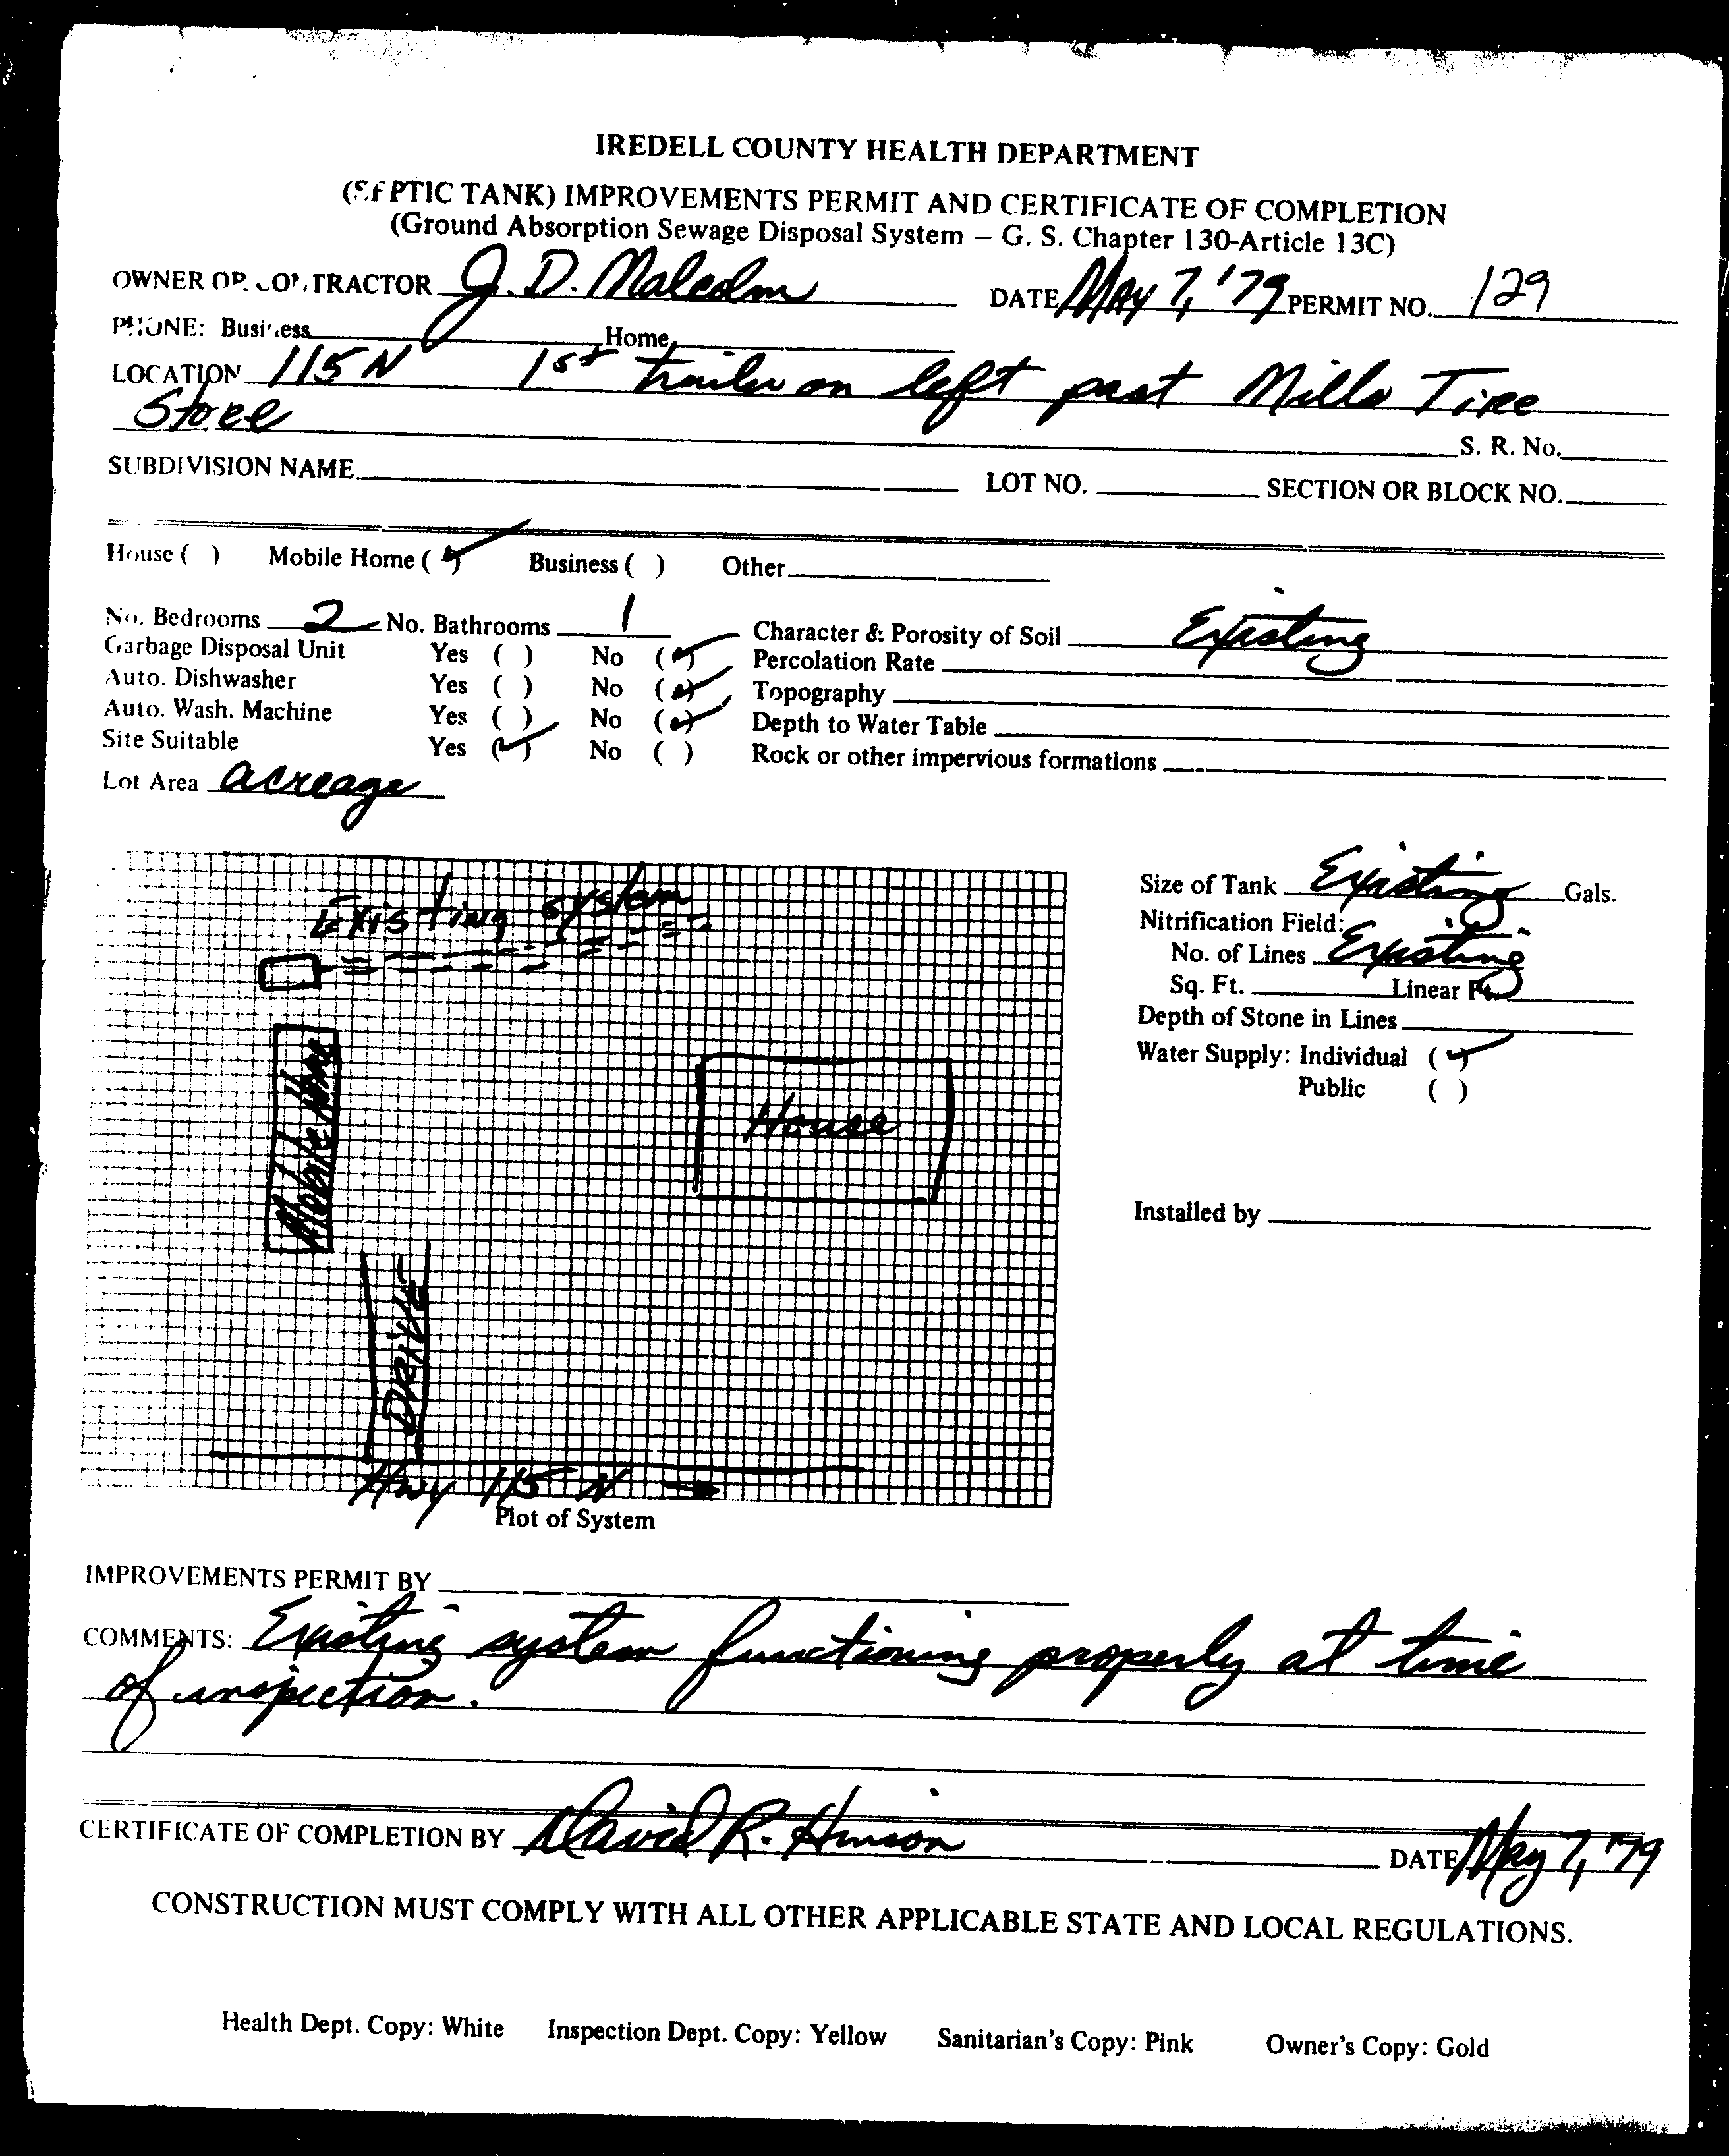 IREDELL COUNTY HEALTH DEPARTMENT
(SEPTIC TANK) IMPROVEMENTS PERMIT AND CERTIFICATE OF COMPLETION
(Ground Absorption Sewage Disposal System – G. S. Chapter 130-Article 13C)
OWNER OR CONTRACTOR J. D. Malcolm DATE May 7, '79 PERMIT NO. 129
PHONE: Business Home
LOCATION 115 N 1st trailer on left past Mills Tire
Store
S. R. No.
SUBDIVISION NAME LOT NO. SECTION OR BLOCK NO.
House ( ) Mobile Home (✓) Business ( ) Other
No. Bedrooms 2 No. Bathrooms 1 Character & Porosity of Soil Existing
Garbage Disposal Unit Yes ( ) No (✓) Percolation Rate
Auto. Dishwasher Yes ( ) No (✓) Topography
Auto. Wash. Machine Yes ( ) No (✓) Depth to Water Table
Site Suitable Yes (✓) No ( ) Rock or other impervious formations
Lot Area acreage
Existing system
Mobile Home
House
DRIVE
Hwy 115 N →
Plot of System
Size of Tank Existing Gals.
Nitrification Field:
No. of Lines Existing
Sq. Ft. Linear Ft.
Depth of Stone in Lines
Water Supply: Individual (✓)
Public ( )
Installed by
IMPROVEMENTS PERMIT BY
COMMENTS: Existing system functioning properly at time
of inspection.
CERTIFICATE OF COMPLETION BY David R. Hinson DATE May 7, '79
CONSTRUCTION MUST COMPLY WITH ALL OTHER APPLICABLE STATE AND LOCAL REGULATIONS.
Health Dept. Copy: White Inspection Dept. Copy: Yellow Sanitarian's Copy: Pink Owner's Copy: Gold